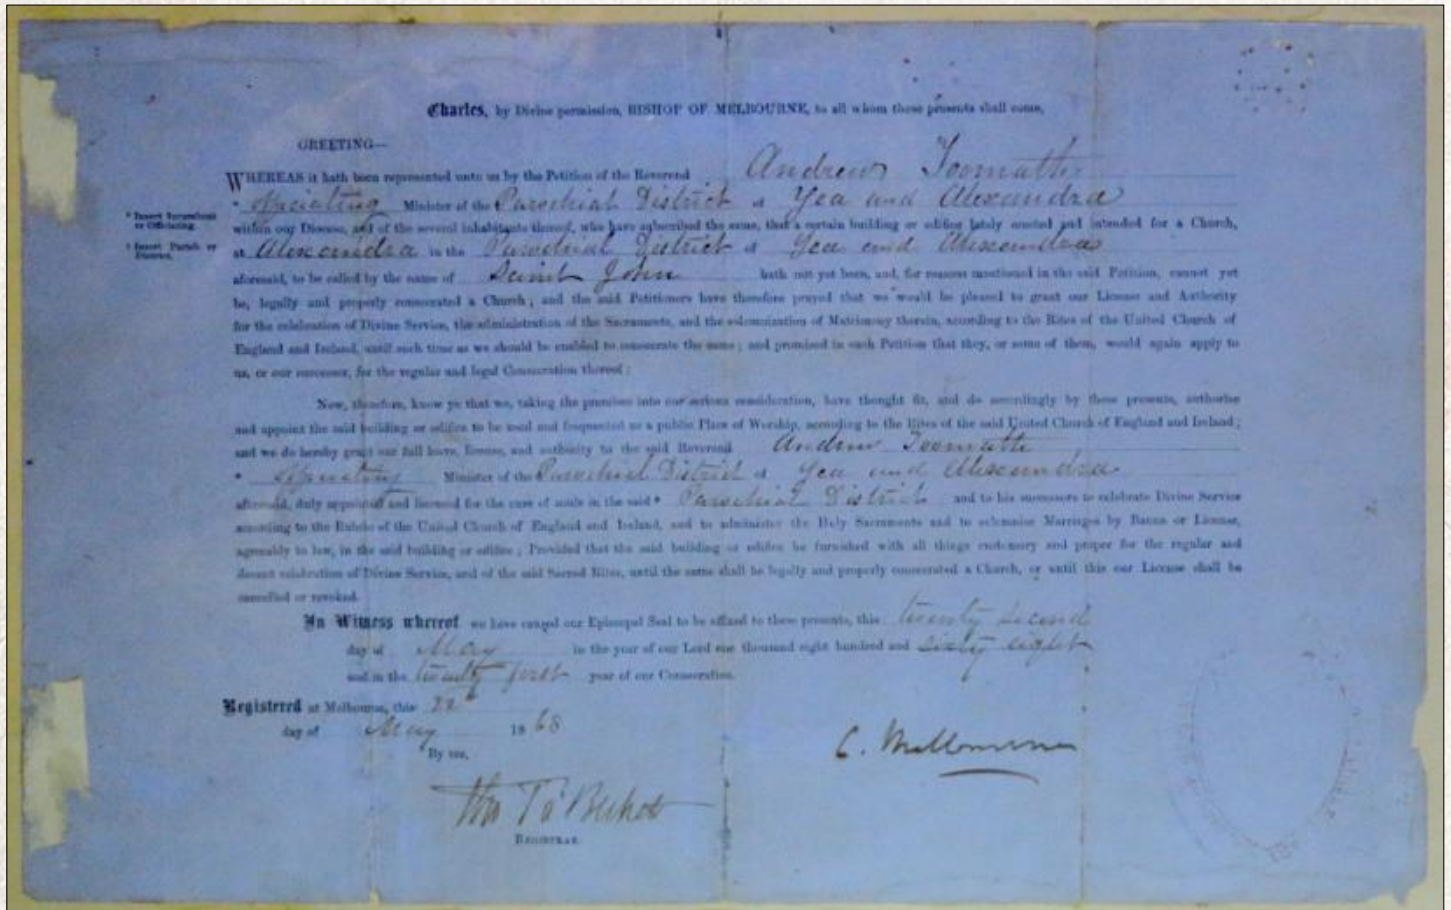 Charles, by Divine permission, BISHOP OF MELBOURNE, to all whom these presents shall come,
GREETING—
WHEREAS it hath been represented unto us by the Petition of the Reverend Andrew Toomath
* Officiating Minister of the Parochial District of Yea and Alexandra
* Insert Incumbent or Officiating.
within our Diocese, and of the several inhabitants thereof, who have subscribed the same, that a certain building or edifice lately erected and intended for a Church,
† Insert Parish or District.
at Alexandra in the Parochial District of Yea and Alexandra
aforesaid, to be called by the name of Saint John hath not yet been, and, for reasons mentioned in the said Petition, cannot yet
be, legally and properly consecrated a Church; and the said Petitioners have therefore prayed that we would be pleased to grant our License and Authority
for the celebration of Divine Service, the administration of the Sacraments, and the solemnization of Matrimony therein, according to the Rites of the United Church of
England and Ireland, until such time as we should be enabled to consecrate the same; and promised in such Petition that they, or some of them, would again apply to
us, or our successor, for the regular and legal Consecration thereof:
Now, therefore, know ye that we, taking the premises into our serious consideration, have thought fit, and do accordingly by these presents, authorise
and appoint the said building or edifice to be used and frequented as a public Place of Worship, according to the Rites of the said United Church of England and Ireland;
and we do hereby grant our full leave, license, and authority to the said Reverend Andrew Toomath
* Officiating Minister of the Parochial District of Yea and Alexandra
aforesaid, duly appointed and licensed for the cure of souls in the said Parochial District and to his successors to celebrate Divine Service
according to the Rubric of the United Church of England and Ireland, and to administer the Holy Sacraments and to solemnise Marriages by Banns or License,
agreeably to law, in the said building or edifice; Provided that the said building or edifice be furnished with all things customary and proper for the regular and
decent celebration of Divine Service, and of the said Sacred Rites, until the same shall be legally and properly consecrated a Church, or until this our License shall be
cancelled or revoked.
In Witness whereof we have caused our Episcopal Seal to be affixed to these presents, this twenty second
day of May in the year of our Lord one thousand eight hundred and sixty eight
and in the twenty first year of our Consecration.
Registered at Melbourne, this 22
day of May 1868
By me,
C. Melbourne
REGISTRAR.